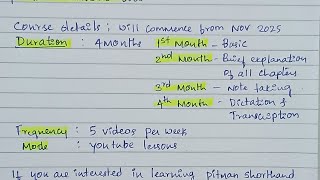 Course details : Will commence from Nov 2025
Duration : 4 months 1st Month - Basic
2nd Month - Brief explanation of all chapters
3rd Month - Note taking
4th Month - Dictation & Transcription
Frequency : 5 videos per week
Mode : youtube lessons
If you are interested in learning pitman shorthand